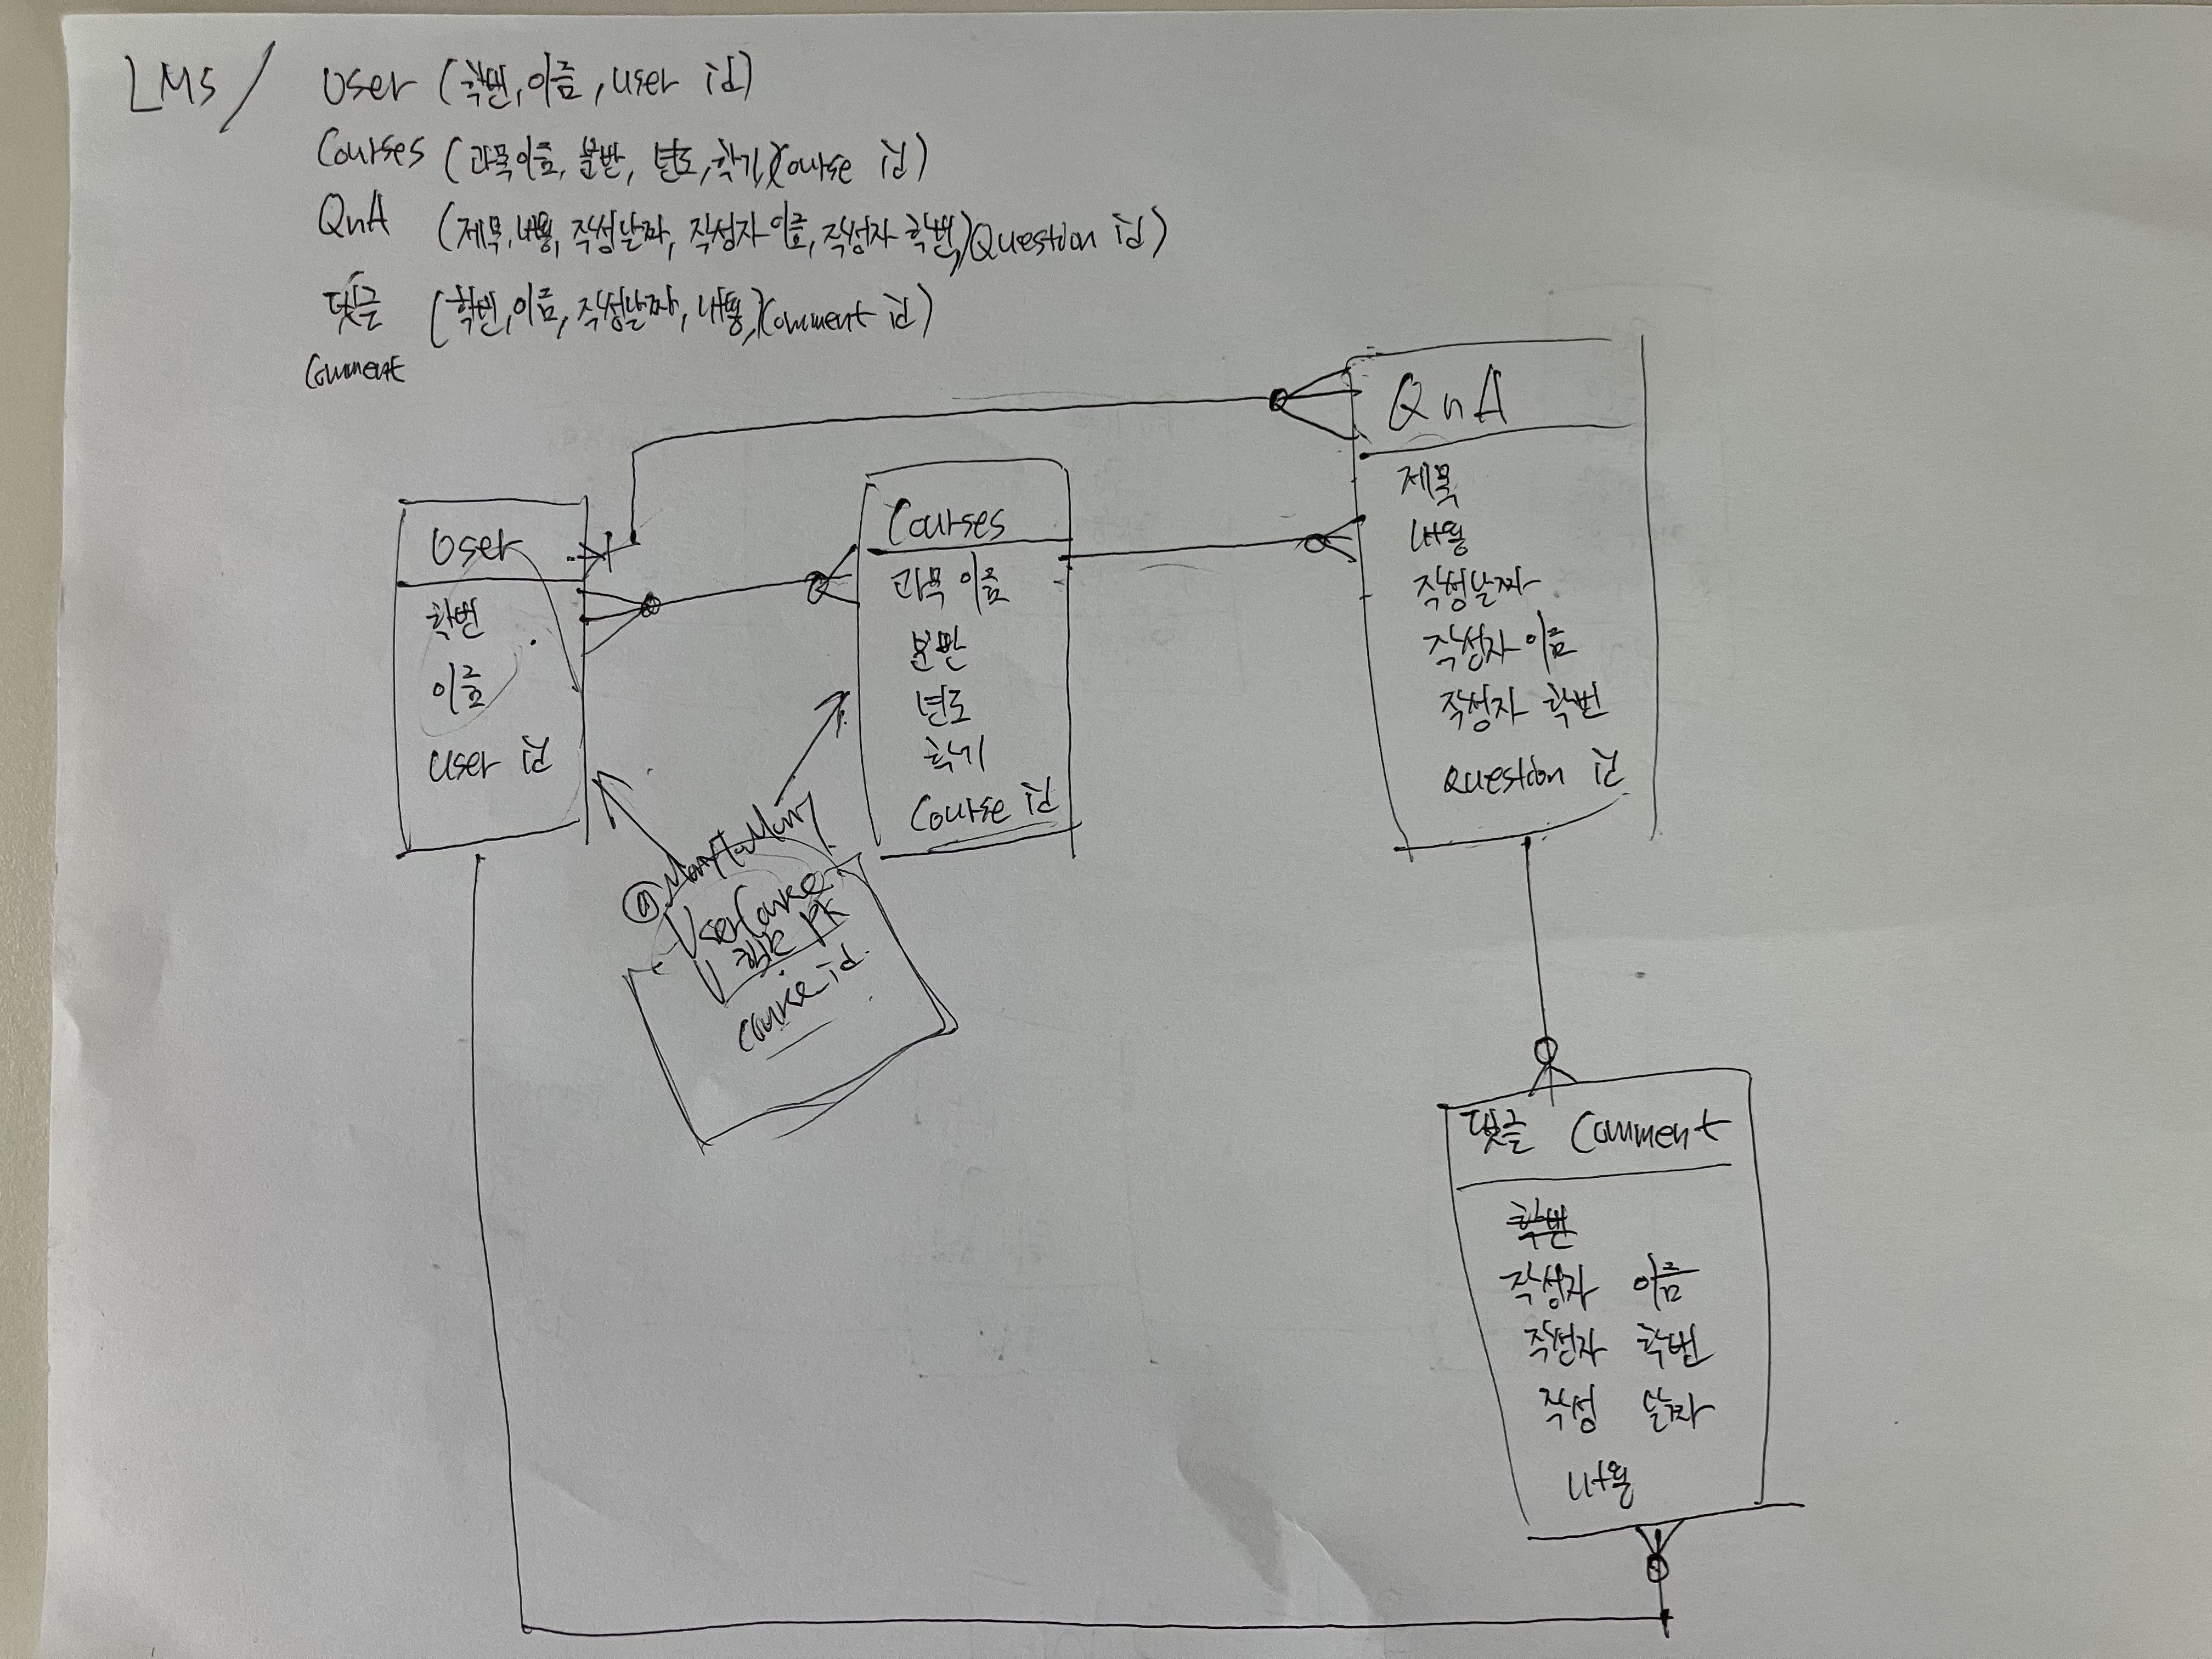 LMS / User (학번, 이름, user id)
Courses (과목이름, 분반, 년도, 학기, Course id)
QnA (제목, 내용, 작성날짜, 작성자 이름, 작성자 학번, Question id)
댓글 (학번, 이름, 작성날짜, 내용, Comment id)
Comment
User
학번
이름
user id
Courses
과목 이름
분반
년도
학기
Course id
QnA
제목
내용
작성날짜
작성자 이름
작성자 학번
Question id
@ManytoMany
UserCourse
PK
course_id
댓글 Comment
학번
작성자 이름
작성자 학번
작성 날짜
내용